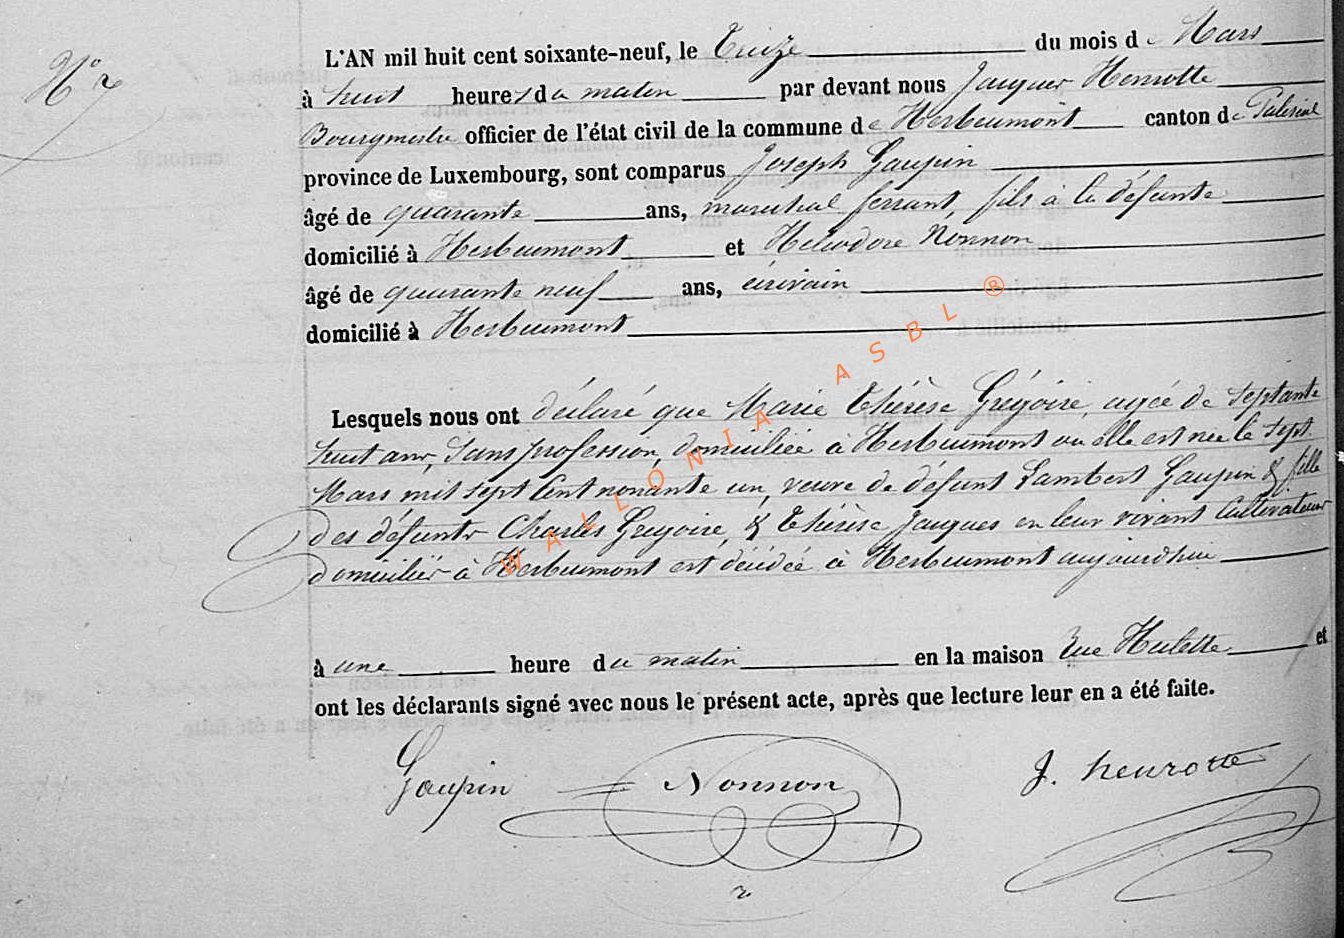 N° 7
L'AN mil huit cent soixante-neuf, le Treize du mois de Mars
à huit heures du matin par devant nous Jacques Henrotte
Bourgmestre officier de l'état civil de la commune de Herbeumont canton de Paliseul
province de Luxembourg, sont comparus Joseph Gaupin
âgé de quarante ans, maréchal ferrant, fils à la défunte
domicilié à Herbeumont et Héliodore Nonnon
âgé de quarante neuf ans, écrivain
domicilié à Herbeumont
Lesquels nous ont déclaré que Marie Thérèse Grégoire, agée de septante
huit ans, sans profession, domiciliée à Herbeumont ou elle est née le sept
Mars mil sept cent nonante un, veuve de défunt Lambert Gaupin & fille
des défunts Charles Grégoire, & Thérèse Jacques en leur vivant Cultivateurs
domiciliés à Herbeumont est décédée à Herbeumont aujourdhui
à une heure du matin en la maison Rue Hulette et
ont les déclarants signé avec nous le présent acte, après que lecture leur en a été faite.
Gaupin Nonnon J. henrotte
WALLONIA ASBL ®